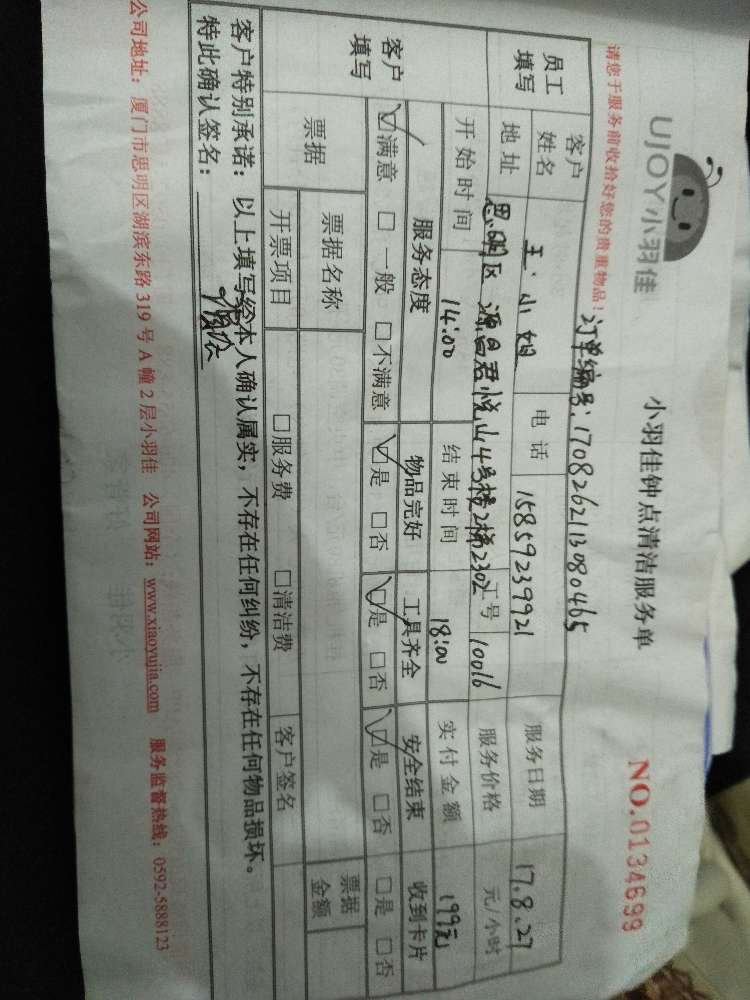 UJOY小羽佳
小羽佳钟点清洁服务单
NO.0134699
请您于服务前收拾好您的贵重物品!
订单编号:1708262113080465
员工填写
客户姓名 王小姐 电话 15859239921 服务日期 17.8.27
地址 思明区源昌君悦山4号楼2梯2302 工号 10016 服务价格 元/小时
开始时间 14:00 结束时间 18:00 实付金额 199元
客户填写
服务态度 物品完好 工具齐全 安全结束 收到卡片
☑满意 □一般 □不满意 ☑是 □否 ☑是 □否 ☑是 □否 □是 □否
票据 票据名称 票据金额
开票项目 □服务费 □清洁费 客户签名
客户特别承诺:以上填写经本人确认属实,不存在任何纠纷,不存在任何物品损坏。
特此确认签名:
公司地址:厦门市思明区湖滨东路319号A幢2层小羽佳 公司网站:www.xiaoyujia.com 服务监督热线:0592-5888123